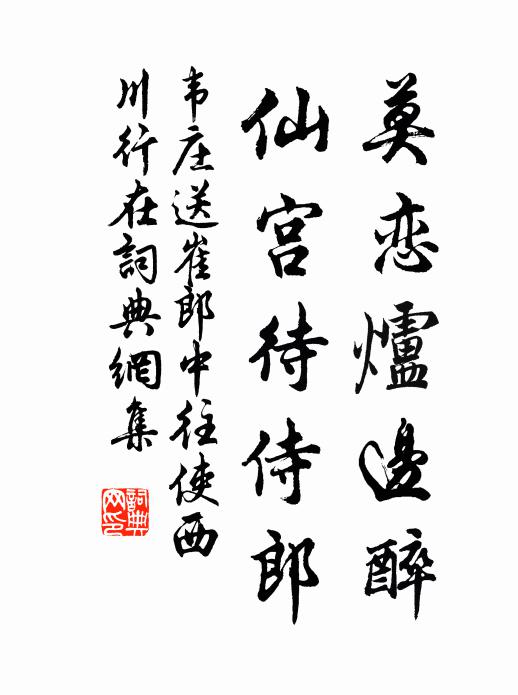 莫恋爐邊醉
仙宫待侍郎
韦庄送崔郎中往使西
川行在詞典網集
詞典
网印